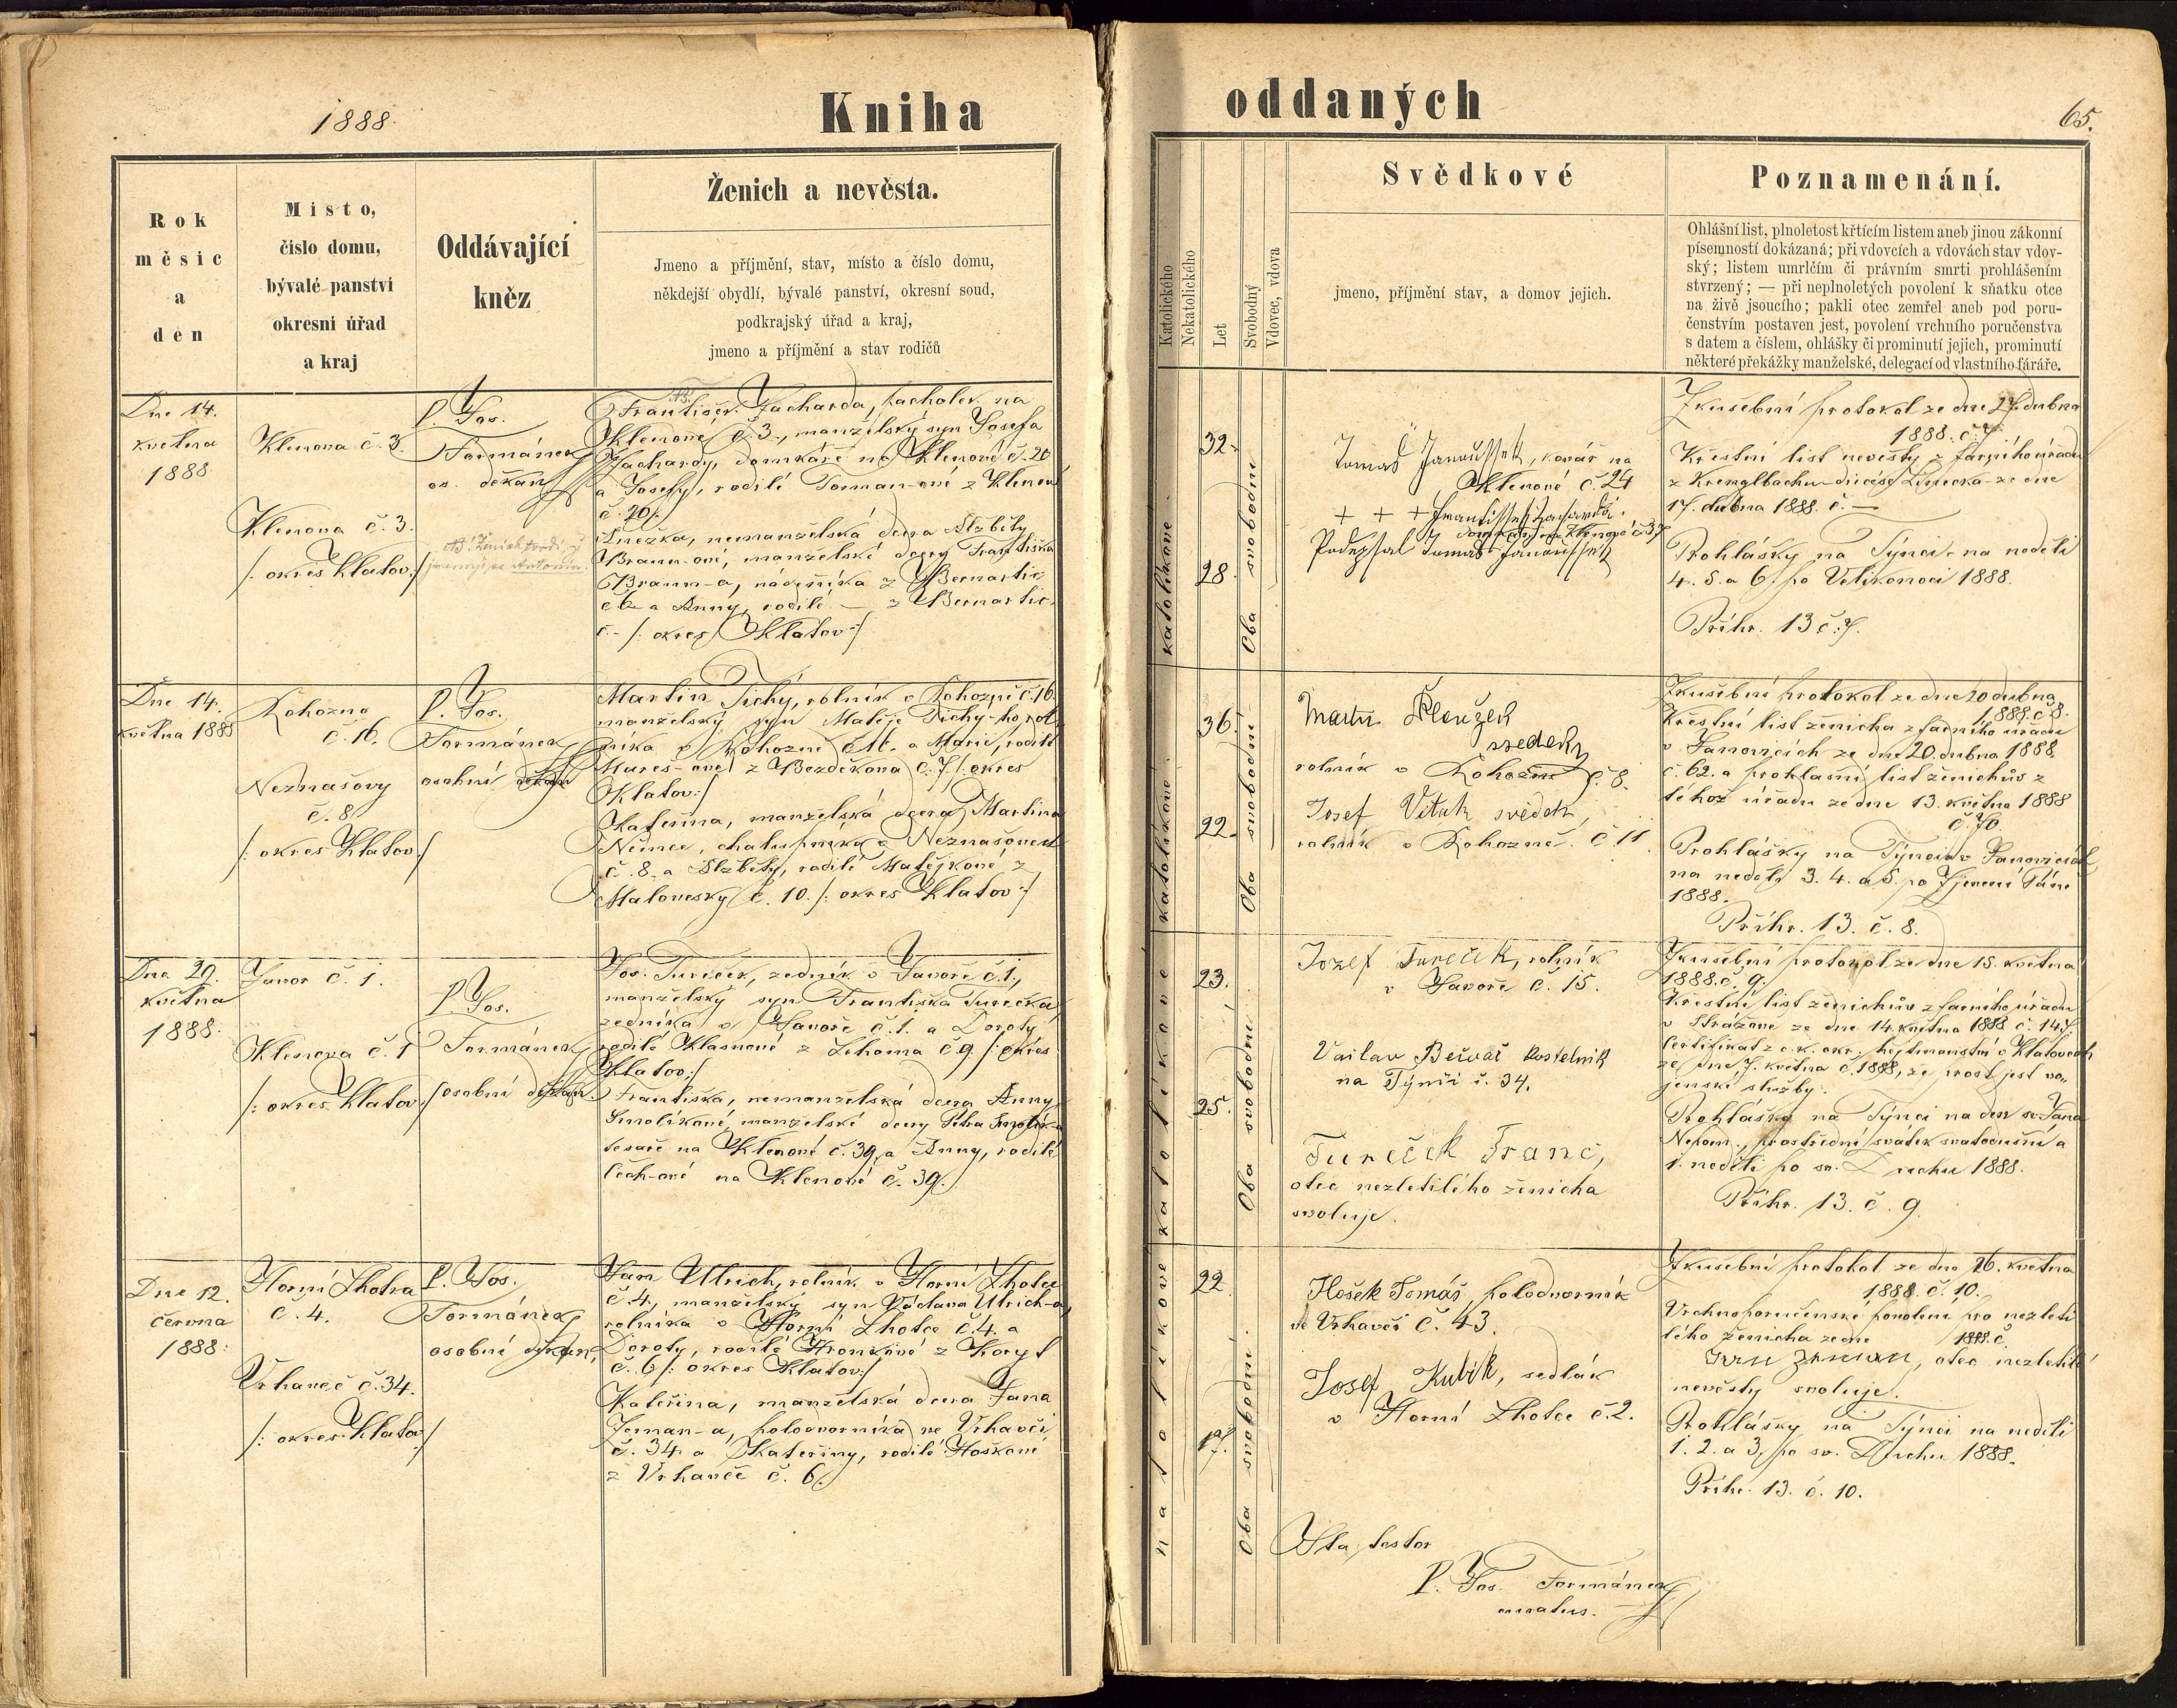 1888.
Kniha
Ženich a nevěsta.
Rok
měsíc
a
den
Místo,
číslo domu,
bývalé panství
okresní úřad
a kraj
Oddávající
kněz
Jmeno a příjmění, stav, místo a číslo domu,
někdejší obydlí, bývalé panství, okresní soud,
podkrajský úřad a kraj,
jmeno a příjmění a stav rodičů
Dne 14.
května
1888.
Klenova č. 3.
Klenova č. 3.
/: okres Klatov:/
P. Jos.
Formánek
os. děkan
NB. Ženich tvrdí, že
jmenuje se Antonín.
František Zacharda, pacholek na
Klenové č. 3., manželský syn Josefa
Zachardy, domkáře na Klenové č. 20
a Josefy, rodilé Toman-ové z Klenové
č. 20/.
Anežka, nemanželská dcera Alžběty
Braun-ové, manželské dcery Františka
Braun-a, nádeníka z Bernartic
č. 6 a Anny, rodilé — z Bernartic
č. - /: okres Klatov:/
Dne 14.
května 1888
Rohozno
č. 16.
Neznašovy
č. 8.
/: okres Klatov:/
P. Jos.
Formánek
osobní děkan
Martin Tichý, rolník v Rohozně č. 16.
manželský syn Matěje Tichy-ho, rol
níka v Rohozně č. 16. a Marie, rodilé
Mareš-ové z Bezděkova č. 7. /: okres
Klatov:/
Kateřina, manželská dcera Martina
Němce, chalupníka v Neznašovech
č. 8. a Alžběty, rodilé Matějkové z
Malovesky č. 10. /: okres Klatov:/
Dne 29.
května
1888.
Javor č. 1.
Klenova č. 1
/: okres Klatov:/
P. Jos.
Formánek
osobní děkan.
Jos. Tureček, zedník v Javoře č. 1,
manželský syn Františka Turečka
zedníka v Javoře č. 1. a Doroty
rodilé Klasnové z Lehoma č. 9. /: okres
Klatov:/
Františka, nemanželská dcera Anny
Smolíkové, manželské dcery Petra Smolíka
tesaře na Klenové č. 39, a Anny, rodilé
Čech-ové na Klenové č. 39.
Dne 12.
června
1888.
Horní Lhota
č. 4.
Vrhaveč č. 34.
/: okres Klatov:/
P. Jos.
Formánek
osobní děkan
Jan Ulrich, rolník v Horní Lhotce
č. 4, manželský syn Václava Ulrich-a,
rolníka v Horní Lhotce č. 4. a
Doroty, rodilé Hronkové z Koryt
č. 6 /: okres Klatov:/
Kateřina, manželská dcera Jana
Zeman-a, polodvorníka ve Vrhavči
č. 34. a Kateřiny, rodilé Hoškové
z Vrhavče č. 6.
oddaných
65.
Katolického
Nekatolického
Let
Svobodný
Vdovec, vdova
Svědkové
jmeno, příjmění stav, a domov jejich.
Poznamenání.
Ohlášní list, plnoletost křtícím listem aneb jinou zákonní
písemností dokázaná; při vdovcích a vdovách stav vdov-
ský; listem umrlčím či právním smrti prohlášením
stvrzený; — při neplnoletých povolení k sňatku otce
na živě jsoucího; pakli otec zemřel aneb pod poru-
čenstvím postaven jest, povolení vrchního poručenstva
s datem a číslem, ohlášky či prominutí jejich, prominutí
některé překážky manželské, delegací od vlastního fáráře.
katolíkové
32.
28.
Oba svobodni
Tomaš Janouššek, kovář na
Klenové č. 24
+ + + Františsek Zacharda.
domkář na Klenové č 37
Podepsal Tomaš Janouššek
Zkušební protokol ze dne 27. dubna
1888. č. 7.
Křestní list nevěsty z farního úřadu
z Krenglbachu diécése Linecká ze dne
17. dubna 1888. č. —
Prohlášky na Týnci na neděli
4. 5. a 6. po Velikonoci 1888.
Příhr. 13 č. 7.
katolíkové
36.
22.
Oba svobodni
Martin Řloužek
svedek,
rolník v Rohozně č. 8.
Josef Vituh svědek,
rolník v Rohozně. č 11.
Zkušební protokol ze dne 20 dubna
1888. č 8.
Křestní list ženicha z farního úřadu
v Janovicích ze dne 20. dubna 1888.
č. 62. a prohlašní list ženichův z
téhož úřadu ze dne 13. května 1888
č. 70.
Prohlášky na Týnci a v Janovicích
na neděli 3. 4. a 5. po Zjevení Páně
1888.
Příhr. 13. č. 8.
katolíkové
23.
25.
Oba svobodni
Jozef Tureček, rolník
v Javoře č. 15.
Vaclav Beivař kostelník
na Týnci č. 34.
Tureček Franc,
otec nezletilého ženicha
svoluje.
Zkušební protokol ze dne 15. května
1888. č. 9.
Křestní list ženichův z farního úřadu
v Strážově ze dne 14. května 1888 č. 147.
Certifikat z c. k. okr. hejtmanství v Klatovech
ze dne 7. května č. 1888, že prost jest vo„
jenské služby.
Prohlášky na Týnci na den sv. Jana
Nepom., prostřední svátek svatodušní a
1. neděli po sv. Duchu 1888.
Příhr. 13. č. 9.
katolíkové
22.
17.
Oba svobodni.
Hošek Tomáš, polodvorník
ve Vrhavči č. 43.
Josef Kubík, sedlák
v Horní Lhotce č. 2.
Zkušební protokol ze dne 26. května
1888. č. 10.
Vrchnoporučenské povolení pro nezleti
lého ženicha ze dne 1888. č.
Jan Zeman, otec nezletilé
nevěsty svoluje.
Prohlášky na Týnci na neděli
1. 2. a 3. po sv. Duchu 1888.
Příhr. 13. č. 10.
Ita testor
P. Jos. Formánek
curatus.